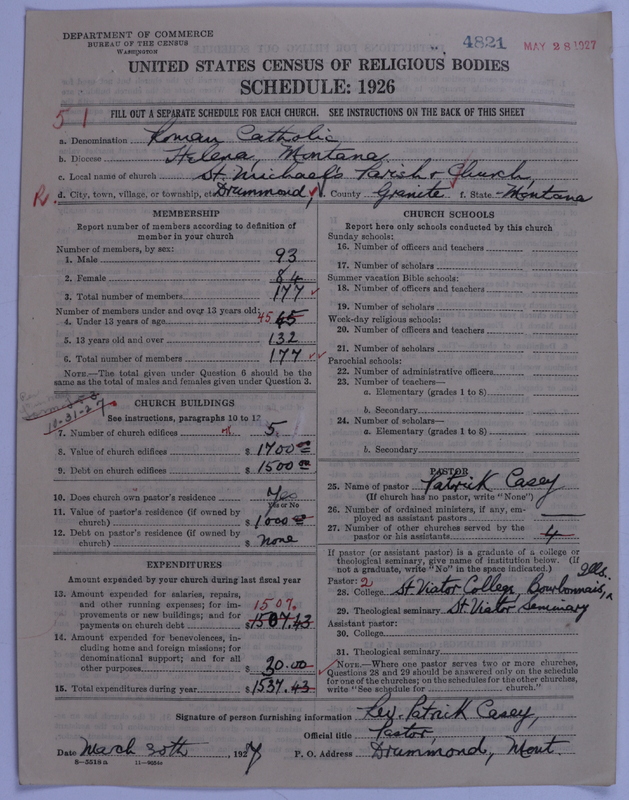 DEPARTMENT OF COMMERCE
BUREAU OF THE CENSUS
WASHINGTON
4821
MAY 28 1927
UNITED STATES CENSUS OF RELIGIOUS BODIES
SCHEDULE: 1926
51
FILL OUT A SEPARATE SCHEDULE FOR EACH CHURCH. SEE INSTRUCTIONS ON THE BACK OF THIS SHEET
a. Denomination Roman Catholic
b. Diocese Helena, Montana
c. Local name of church St Michael's Parish & Church,
R. d. City, town, village, or township, etc Drummond, County Granite f. State Montana
MEMBERSHIP
Report number of members according to definition of
member in your church
Number of members, by sex:
1. Male 93
2. Female 84
3. Total number of members 177
Number of members under and over 13 years old:
4. Under 13 years of age 45 45
5. 13 years old and over 132
6. Total number of members 177
NOTE.—The total given under Question 6 should be the
same as the total of males and females given under Question 3.
10-31-27
CHURCH BUILDINGS
See instructions, paragraphs 10 to 12
7. Number of church edifices 5
8. Value of church edifices $ 1700 00
9. Debt on church edifices $ 1500 00
10. Does church own pastor's residence Yes
Yes or No
11. Value of pastor's residence (if owned by
church) $ 1000
12. Debt on pastor's residence (if owned by
church) $ None
EXPENDITURES
Amount expended by your church during last fiscal year
13. Amount expended for salaries, repairs,
and other running expenses; for im-
provements or new buildings; and for
payments on church debt 1507. $ 1507.43
14. Amount expended for benevolences, in-
cluding home and foreign missions; for
denominational support; and for all
other purposes $ 30.00
15. Total expenditures during year $ 1537.43
CHURCH SCHOOLS
Report here only schools conducted by this church
Sunday schools:
16. Number of officers and teachers
17. Number of scholars
Summer vacation Bible schools:
18. Number of officers and teachers
19. Number of scholars
Week-day religious schools:
20. Number of officers and teachers
21. Number of scholars
Parochial schools:
22. Number of administrative officers
23. Number of teachers—
a. Elementary (grades 1 to 8)
b. Secondary
24. Number of scholars—
a. Elementary (grades 1 to 8)
b. Secondary
PASTOR
25. Name of pastor Patrick Casey
(If church has no pastor, write "None")
26. Number of ordained ministers, if any, em-
ployed as assistant pastors —
27. Number of other churches served by the
pastor or his assistants 4
If pastor (or assistant pastor) is a graduate of a college or
theological seminary, give name of institution below. (If
not a graduate, write "No" in the space indicated.)
Pastor: 2 Ills.
28. College St Viator College Bourbonnais,
29. Theological seminary St. Viator Seminary
Assistant pastor:
30. College
31. Theological seminary
NOTE.—Where one pastor serves two or more churches,
Questions 28 and 29 should be answered only on the schedule
for one of the churches; on the schedules for the other churches,
write "See schedule for church."
Signature of person furnishing information Rev. Patrick Casey,
Official title Pastor,
Date March 30th, 1927 P. O. Address Drummond, Mont.
8—5518a 11—9054a